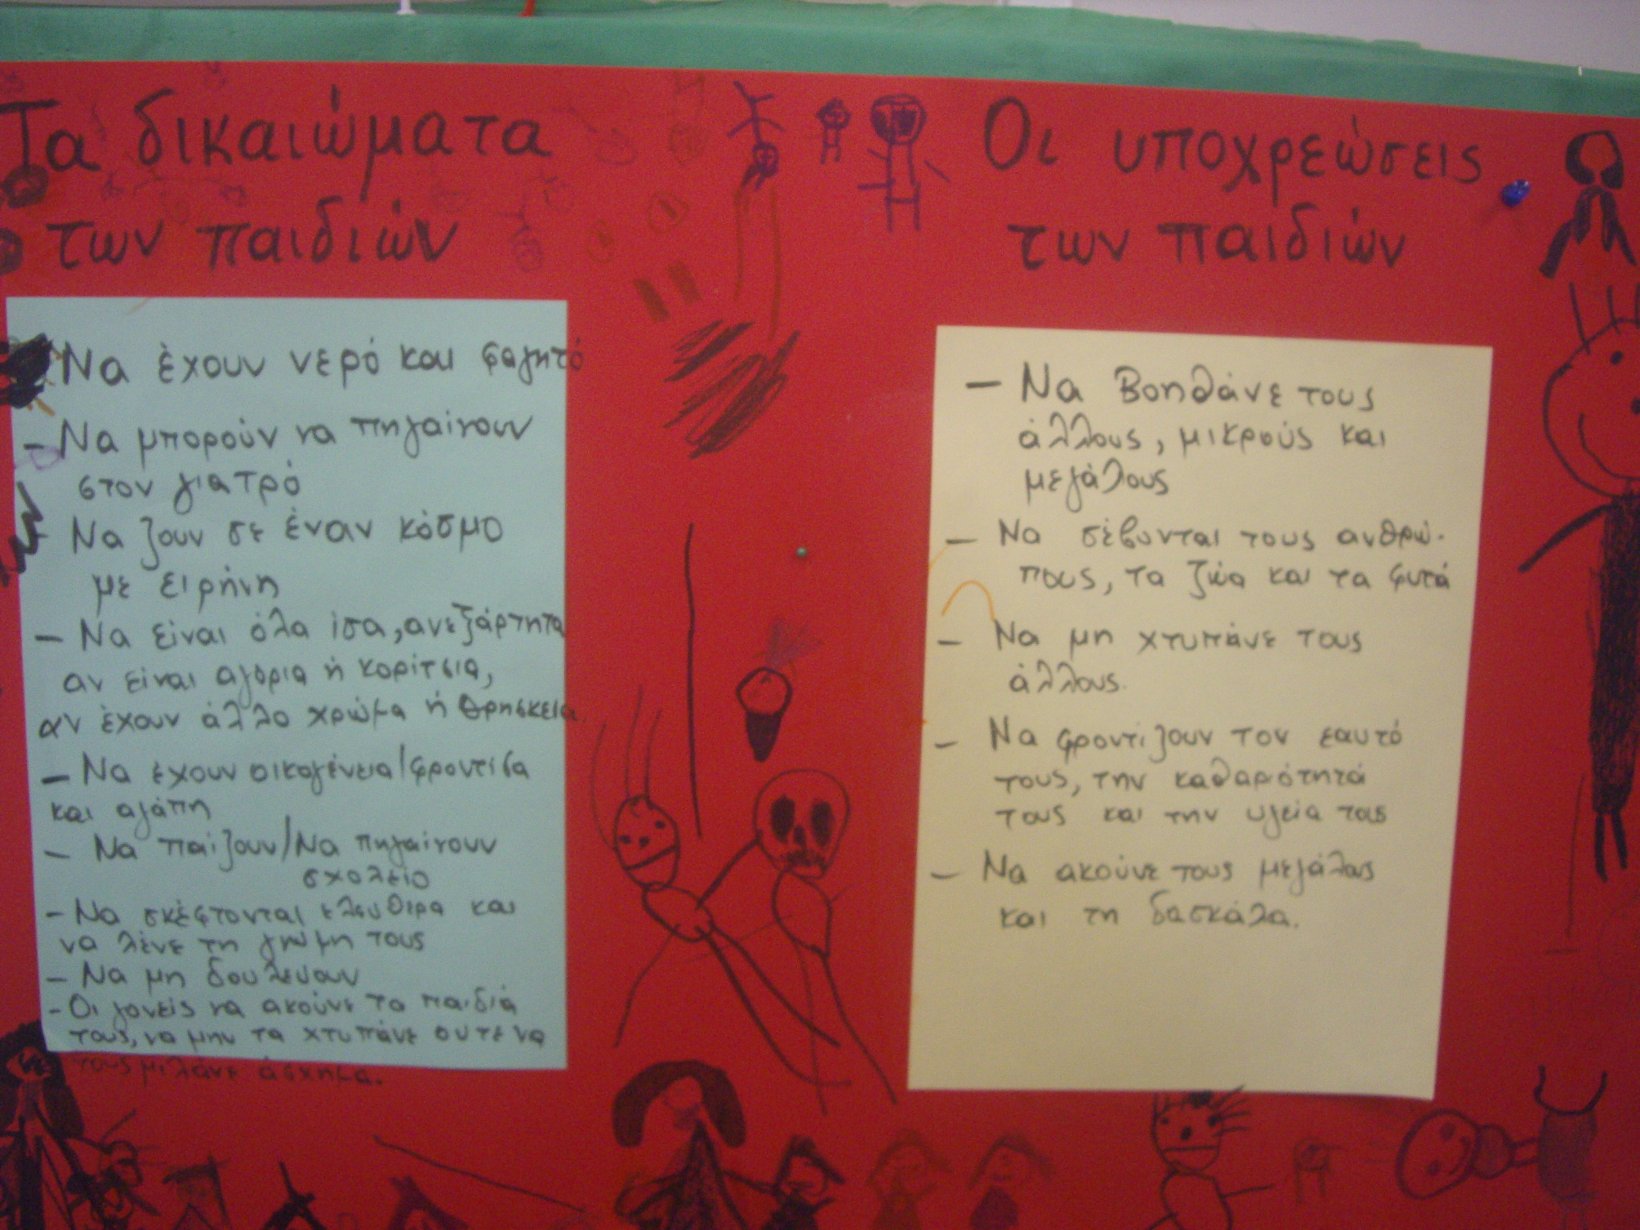 Τα δικαιώματα
των παιδιών
Να έχουν νερό και φαγητό
- Να μπορούν να πηγαίνουν
στον γιατρό
Να ζουν σε έναν κόσμο
με ειρήνη
- Να είναι όλα ίσα, ανεξάρτητα
αν είναι αγόρια ή κορίτσια,
αν έχουν άλλο χρώμα ή θρησκεία
- Να έχουν οικογένεια/φροντίδα
και αγάπη
- Να παίζουν/Να πηγαίνουν
σχολείο
- Να σκέφτονται ελευθερα και
να λένε τη γνώμη τους
- Να μη δουλεύουν
- Οι γονείς να ακούνε τα παιδιά
τους, να μην τα χτυπάνε ουτε να
τους μιλάνε άσχημα.
Οι υποχρεώσεις
των παιδιών
- Να Βοηθάνε τους
άλλους, μικρούς και
μεγάλους
- Να σέβονται τους ανθρώ-
πους, τα ζώα και τα φυτά
- Να μη χτυπάνε τους
άλλους.
- Να φροντίζουν τον εαυτό
τους, την καθαριότητά
τους και την υγεία τους
- Να ακούνε τους μεγάλους
και τη δασκάλα.